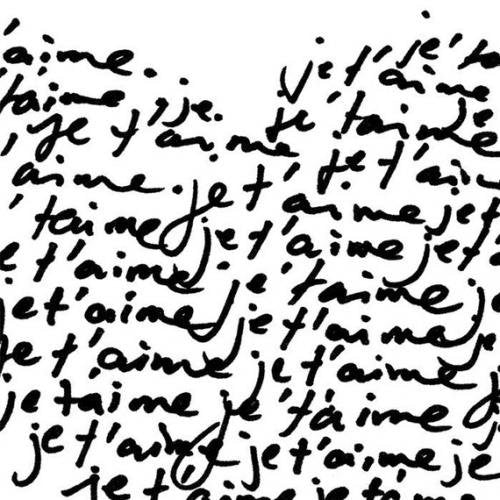 'aime. je t'aime
t'aime, je. je t'aime
, je t'aime je t'aime je
aime. je t'aime je t'ai
t'aime je t'aime je t
e t'aime je t'aime je t'
je t'aime je t'aime j
je t'aime je t'aime je
je t'aime je t'aime
je taime je t'aime
je t'aime je t'aime je
je t'aime je t'a